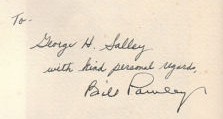 To-
George H. Salley
with kind personal regards,
Bill Pawley